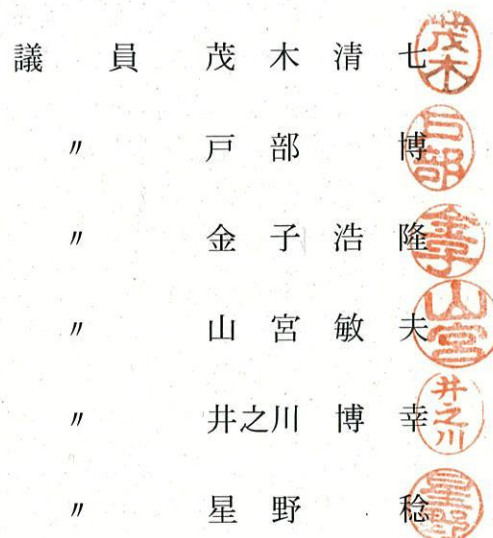 議員 茂木清七 茂木
〃 戸部 博 戸部
〃 金子浩隆 金子
〃 山宮敏夫 山宮
〃 井之川博幸 井之川
〃 星野 稔 星野